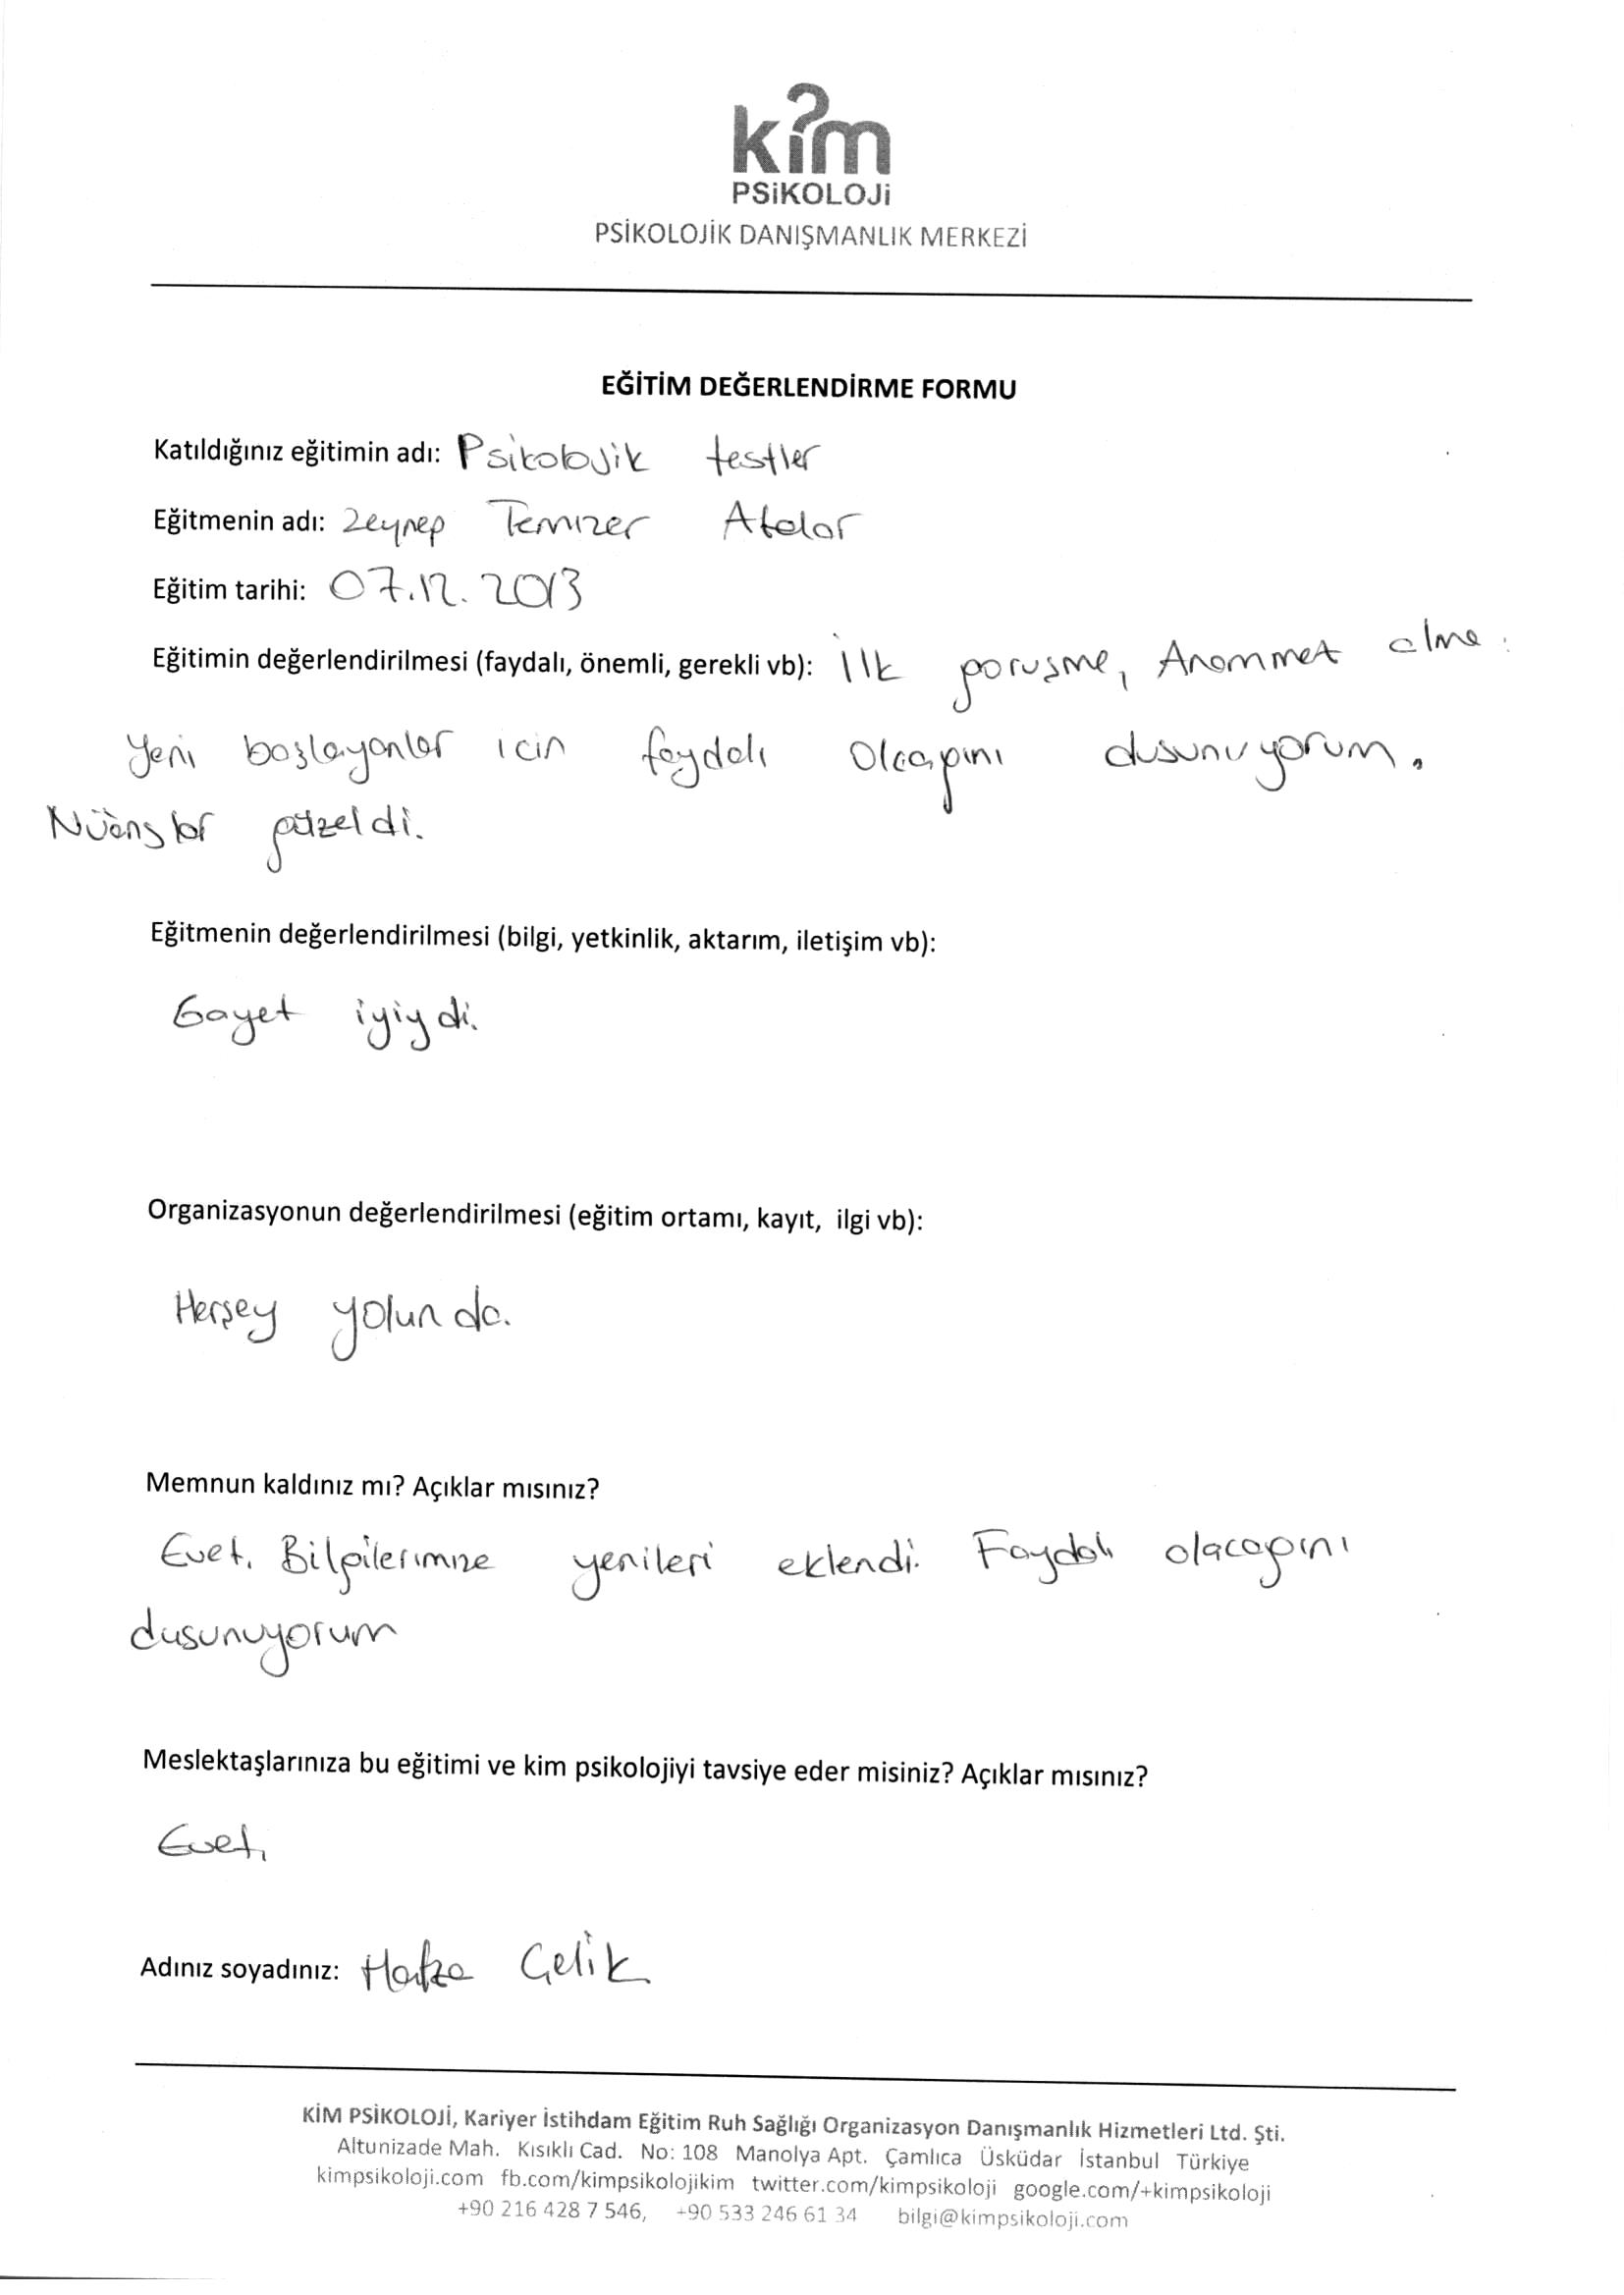 kim
PSiKOLOJi
PSİKOLOJİK DANIŞMANLIK MERKEZİ
EĞİTİM DEĞERLENDİRME FORMU
Katıldığınız eğitimin adı: Psikolojik testler
Eğitmenin adı: Zeynep Temizer Atalar
Eğitim tarihi: 07.12.2013
Eğitimin değerlendirilmesi (faydalı, önemli, gerekli vb): İlk goruşme, Anommet alma
Yeni başlayanlar icin faydalı olcağını dusunuyorum.
Nüanslar güzeldi.
Eğitmenin değerlendirilmesi (bilgi, yetkinlik, aktarım, iletişim vb):
Gayet iyiydi.
Organizasyonun değerlendirilmesi (eğitim ortamı, kayıt, ilgi vb):
Herşey yolunda.
Memnun kaldınız mı? Açıklar mısınız?
Evet. Bilgilerimize yenileri eklendi. Faydalı olacagını
dusunuyorum
Meslektaşlarınıza bu eğitimi ve kim psikolojiyi tavsiye eder misiniz? Açıklar mısınız?
Evet.
Adınız soyadınız: Çelik
KİM PSİKOLOJİ, Kariyer İstihdam Eğitim Ruh Sağlığı Organizasyon Danışmanlık Hizmetleri Ltd. Şti.
Altunizade Mah. Kısıklı Cad. No: 108 Manolya Apt. Çamlıca Üsküdar İstanbul Türkiye
kimpsikoloji.com fb.com/kimpsikolojikim twitter.com/kimpsikoloji google.com/+kimpsikoloji
+90 216 428 7 546, +90 533 246 61 34 bilgi@kimpsikoloji.com